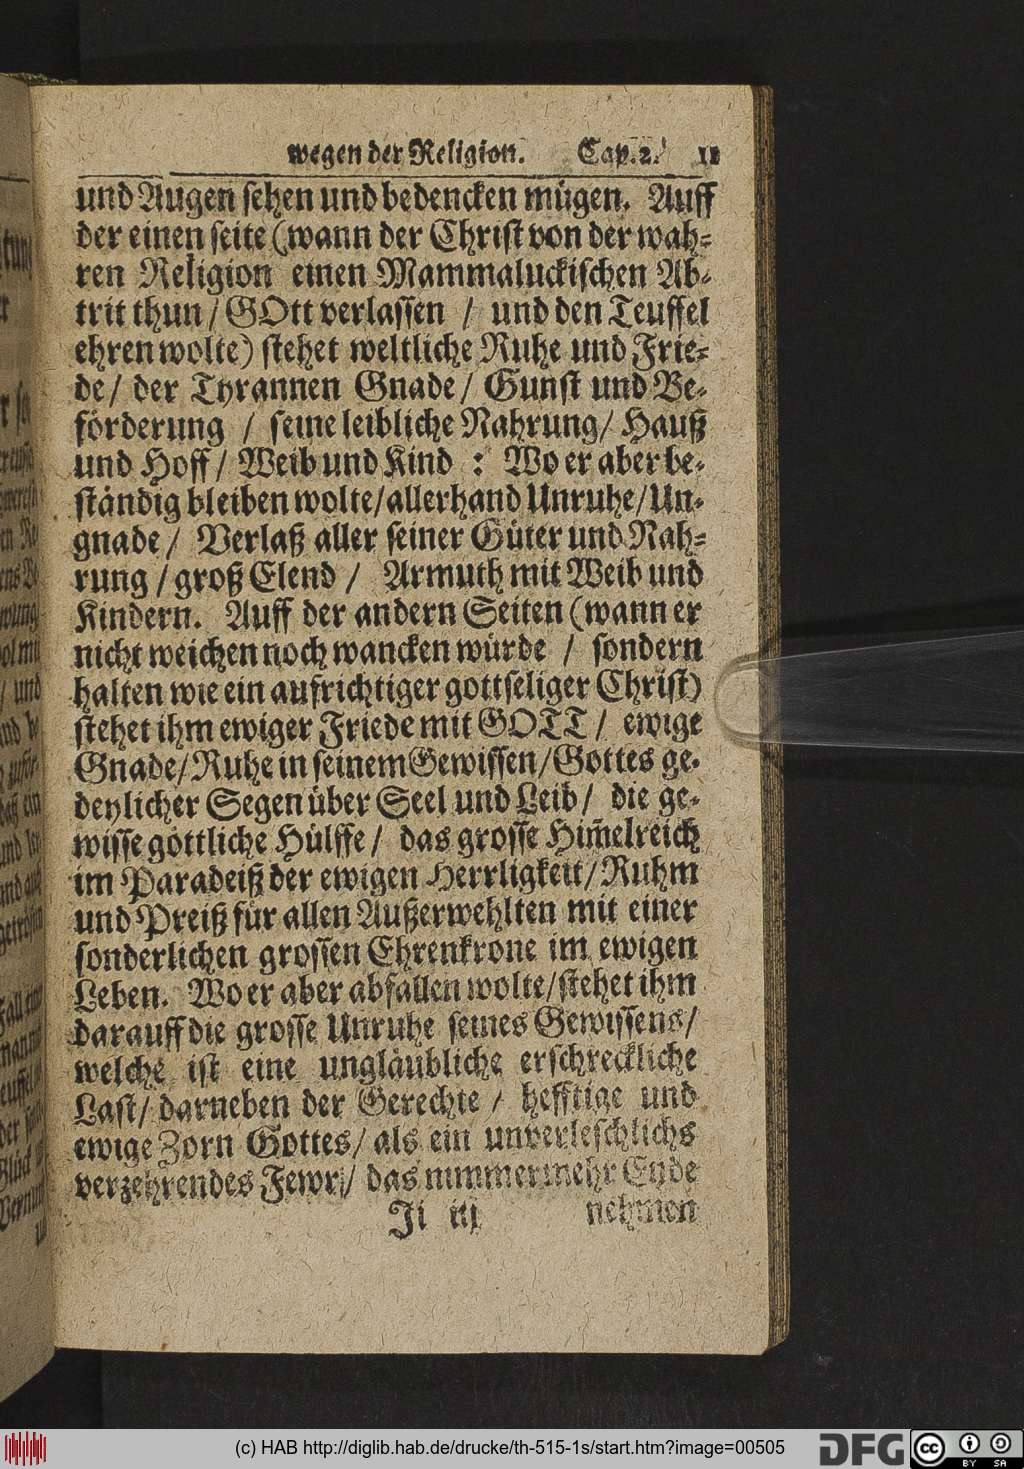 wegen der Religion. Cap. 2. 11
und Augen sehen und bedencken mügen. Auff
der einen seite (wann der Christ von der wah-
ren Religion einen Mammaluckischen Ab-
trit thun / GOtt verlassen / und den Teuffel
ehren wolte) stehet weltliche Ruhe und Frie-
de / der Tyrannen Gnade / Gunst und Be-
förderung / seine leibliche Nahrung / Hauß
und Hoff / Weib und Kind : Wo er aber be-
ständig bleiben wolte / allerhand Unruhe / Un-
gnade / Verlaß aller seiner Güter und Nah-
rung / groß Elend / Armuth mit Weib und
Kindern. Auff der andern Seiten (wann er
nicht weichen noch wancken würde / sondern
halten wie ein aufrichtiger gottseliger Christ)
stehet ihm ewiger Friede mit GOTT / ewige
Gnade / Ruhe in seinem Gewissen / Gottes ge-
deylicher Segen über Seel und Leib / die ge-
wisse göttliche Hülffe / das grosse Him̃elreich
im Paradeiß der ewigen Herrligkeit / Ruhm
und Preiß für allen Außerwehlten mit einer
sonderlichen grossen Ehrenkrone im ewigen
Leben. Wo er aber abfallen wolte / stehet ihm
darauff die grosse Unruhe seines Gewissens /
welche ist eine ungläubliche erschreckliche
Last / darneben der Gerechte / hefftige und
ewige Zorn Gottes / als ein unverleschlichs
verzehrendes Fewr / das nimmermehr Ende
Ji iij nehmen
(c) HAB http://diglib.hab.de/drucke/th-515-1s/start.htm?image=00505
DFG
cc BY SA